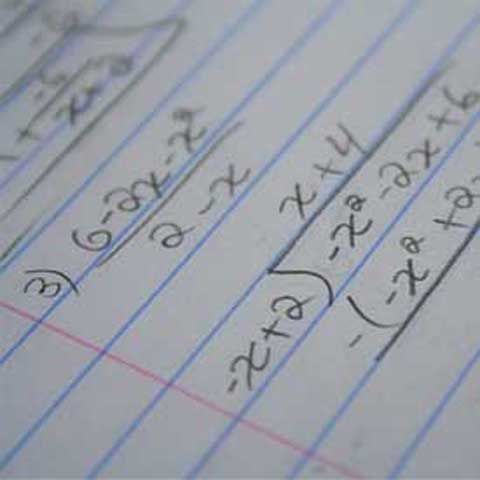 -5
1 + -5 / x+2
3) 6-2x-x² / 2-x
x+4
-x+2) -x²-2x+6
-(-x²+2